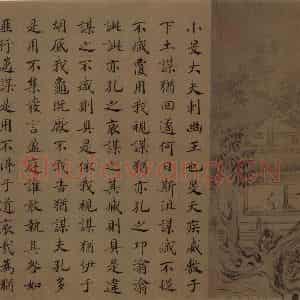 小旻大夫刺幽王也旻天疾威敷于
下土謀猶回遹何日斯沮謀臧不從
不臧覆用我視謀猶亦孔之邛潝潝
訿訿亦孔之哀謀之其臧則具是違
謀之不臧則具是依我視謀猶伊于
胡底我龜既厭不我告猶謀夫孔多
是用不集發言盈庭誰敢執其咎如
匪行邁謀是用不得于道哀哉為猶